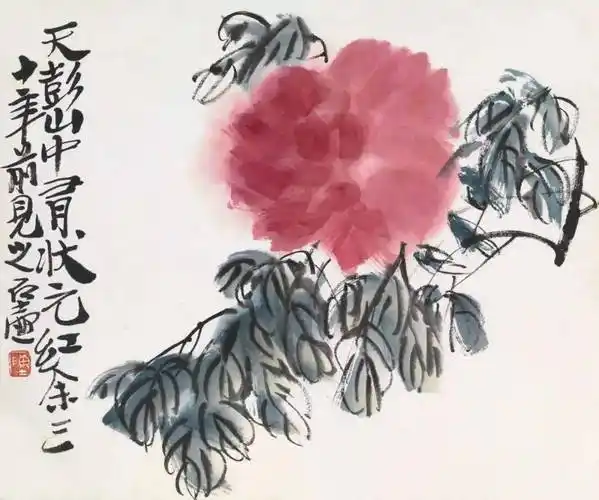 天彭山中有状元红余三
十年前见之石壶